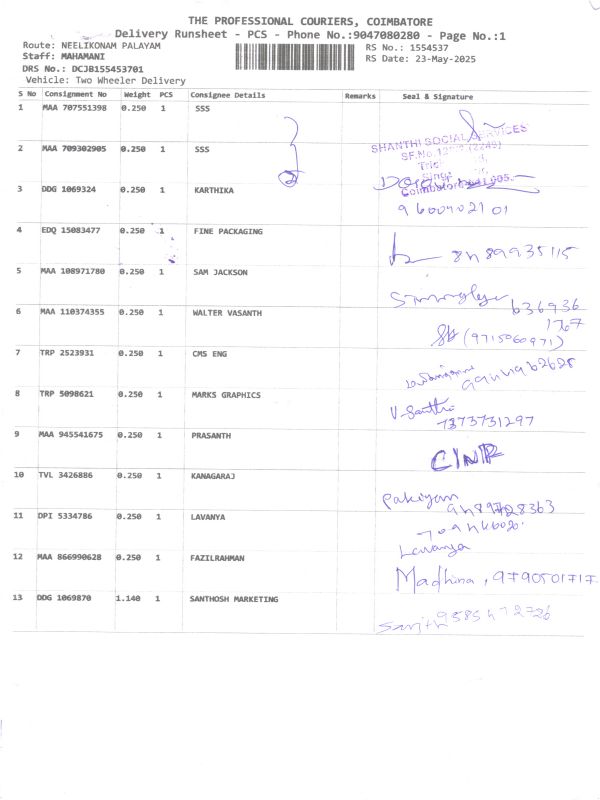 THE PROFESSIONAL COURIERS, COIMBATORE
Delivery Runsheet - PCS - Phone No.:9047080280 - Page No.:1
Route: NEELIKONAM PALAYAM
RS No.: 1554537
Staff: MAHAMANI
RS Date: 23-May-2025
DRS No.: DCJB155453701
Vehicle: Two Wheeler Delivery
S No Consignment No Weight PCS Consignee Details Remarks Seal & Signature
1 MAA 707551398 0.250 1 SSS
SHANTHI SOCIAL SERVICES
2 MAA 709302905 0.250 1 SSS
3 DDG 1069324 0.250 1 KARTHIKA
Coimbatore-641 005.
9600402101
4 EDQ 15083477 0.250 1 FINE PACKAGING
8489935115
5 MAA 108971780 0.250 1 SAM JACKSON
636936
6 MAA 110374355 0.250 1 WALTER VASANTH
1767
(9715960971)
7 TRP 2523931 0.250 1 CMS ENG
8 TRP 5098621 0.250 1 MARKS GRAPHICS
V-Santhi
7373731297
9 MAA 945541675 0.250 1 PRASANTH
10 TVL 3426886 0.250 1 KANAGARAJ
11 DPI 5334786 0.250 1 LAVANYA
Lavanya
12 MAA 866990628 0.250 1 FAZILRAHMAN
Madhina, 9790501717
13 DDG 1069870 1.140 1 SANTHOSH MARKETING
9585472726